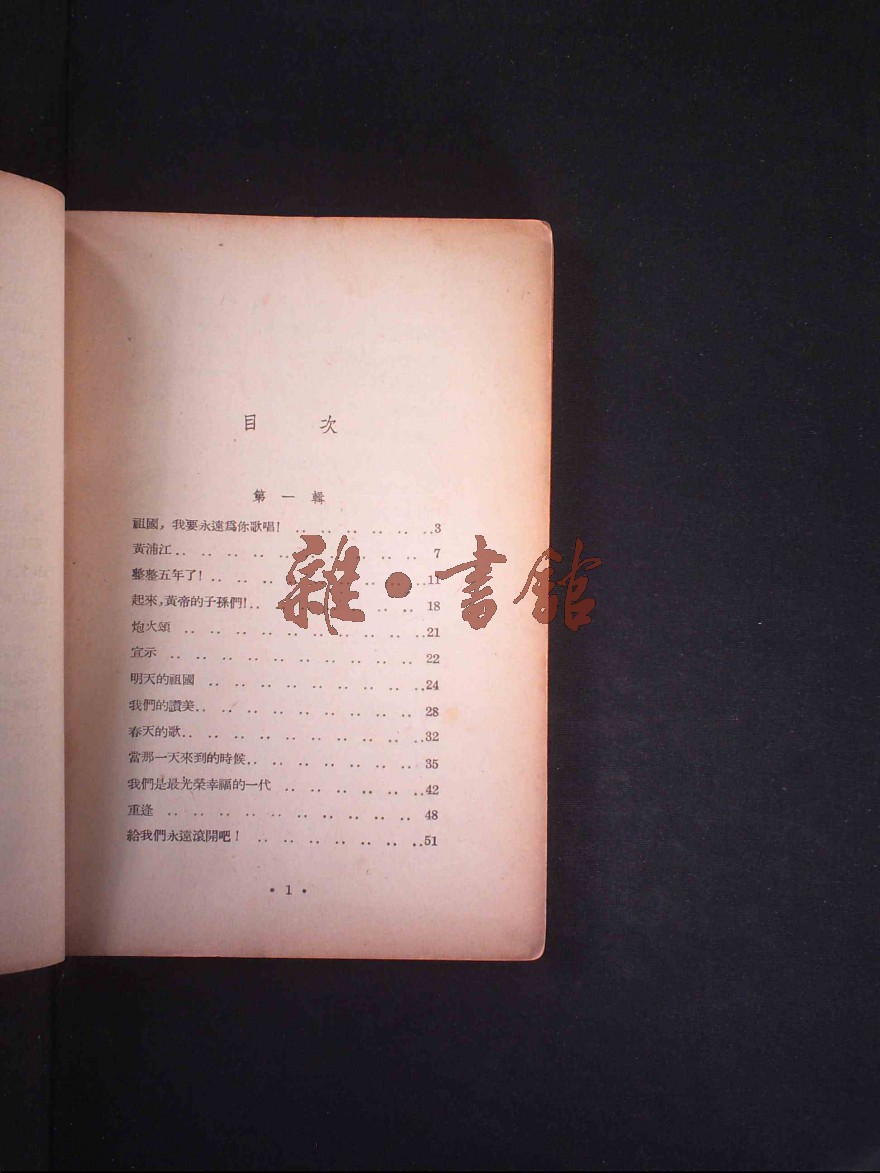 目 次
第 一 輯
祖國，我要永遠爲你歌唱! .. .. .. .. .. ..3
黃浦江.. .. .. .. .. .. .. .. .. .. 7
整整五年了! .. .. .. .. .. .. .. .. ..11
起來，黃帝的子孫們!.. .. .. .. .. .. .. 18
炮火頌 .. .. .. .. .. .. .. .. .. ..21
宣示 .. .. .. .. .. .. .. .. .. .. 22
明天的祖國 .. .. .. .. .. .. .. .. ..24
我們的讚美.. .. .. .. .. .. .. .. .. 28
春天的歌.. .. .. .. .. .. .. .. .. ..32
當那一天來到的時候.. .. .. .. .. .. .. 35
我們是最光榮幸福的一代 .. .. .. .. .. ..42
重逢 .. .. .. .. .. .. .. .. .. .. 48
給我們永遠滾開吧! .. .. .. .. .. .. ..51
• 1 •
雜•書館